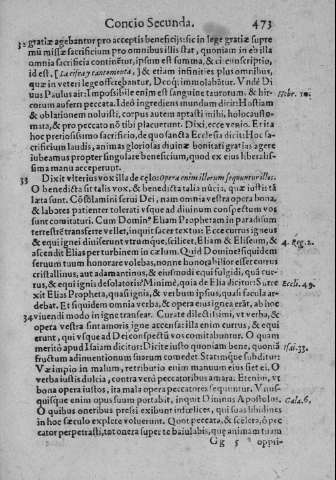 Concio Secunda. 473
32 gratiæ agebantur pro acceptis beneficijs: sic in lege gratiæ supre
mũ missæ sacrificium pro omnibus illis stat, quoniam in eo illa
omnia sacrificia continẽtur, ipsum est summa, & circunscriptio,
id est, [La cifra y tantomonta,] & etiam infinities plus omnibus,
quæ in veteri lege offerebantur, Deoq; immolabãtur. Vndè Di
uus Paulus ait: Impossibile enim est sanguine taurorum, & hir- Hebr. 10.
corum auferri peccata. Ideò ingrediens mundum dicit: Hostiam
& oblationem noluisti, corpus autem aptasti mihi, holocausto-
mata, & pro peccato nõ tibi placuerunt. Dixi, ecce venio. Et ita
hoc pretiosissimo sacrificio, de quo sancta Ecclesia dicit: Hoc sa-
crificium laudis, animas gloriolas diuinæ bonitati gratias agere
iubeamus propter singulare beneficium, quod ex eius liberalis-
sima manu acceperunt.
33 Dixit vlterius vox illa de cęlo: Opera enim illorum sequuntur illos.
O benedicta sit talis vox, & benedicta talis nũcia, quæ iustis tã
læta sunt. Cõsolamini serui Dei, nam omnia vestra opera bona,
& labores patienter tolerati vsque ad diuinum conspectum vos
sunt comitaturi. Cum Dominꝰ Eliam Prophetam in paradisum
terrestrẽ transferre vellet, inquit sacer textus: Ecce currus igneus
& equi ignei diuiserunt vtrumque, scilicet, Eliam & Eliseum, & 4. Reg. 2.
ascendit Elias per turbinem in cælum. Quid Domine? siquidem
seruum tuum honorare volebas, nonne bonũ
cristallinus, aut adamantinus, & eiusmodi equi fulgidi, quã cur-
rus, & equi ignis desolatoris? Minimè, quia de Elia dicitur: Surre Eccli. 48.
xit Elias Propheta, quasi ignis, & verbum ipsius, quasi facula ar-
debat. Et siquidem omnia verba, & opera eius ignea erãt, ab hoc
34 viuendi modo in igne transfear. Curate dilectissimi, vt verba, &
opera vestra sint amoris igne accensa: illa enim currus, & equi
erunt, qui vsque ad Dei conspectũ vos comitabuntur. O quam
meritò apud Isaiam dicitur: Dicite iusto quoniam bene, quoniã Isai. 33.
fructum adinuentionum suarum comedet. Statimque subditur:
Væ impio in malum, retributio enim manuum eius fiet ei. O
verba iustis dulcia, contra verò peccatoribus amara. Etenim, vt
bona opera iustos, ita mala opera peccatores sequuntur. Vnus-
quisque enim opus suum portabit, inquit Diuinus Apostolus. Galat. 6.
O quibus oneribus pressi exibunt infœlices, qui suas libidines
in hoc sæculo explere voluerunt. Quot peccata, & scelera, ò pec
cator perpetrasti, tot onera super te baiulabis, quę animam tuam
Gg 5 oppri-